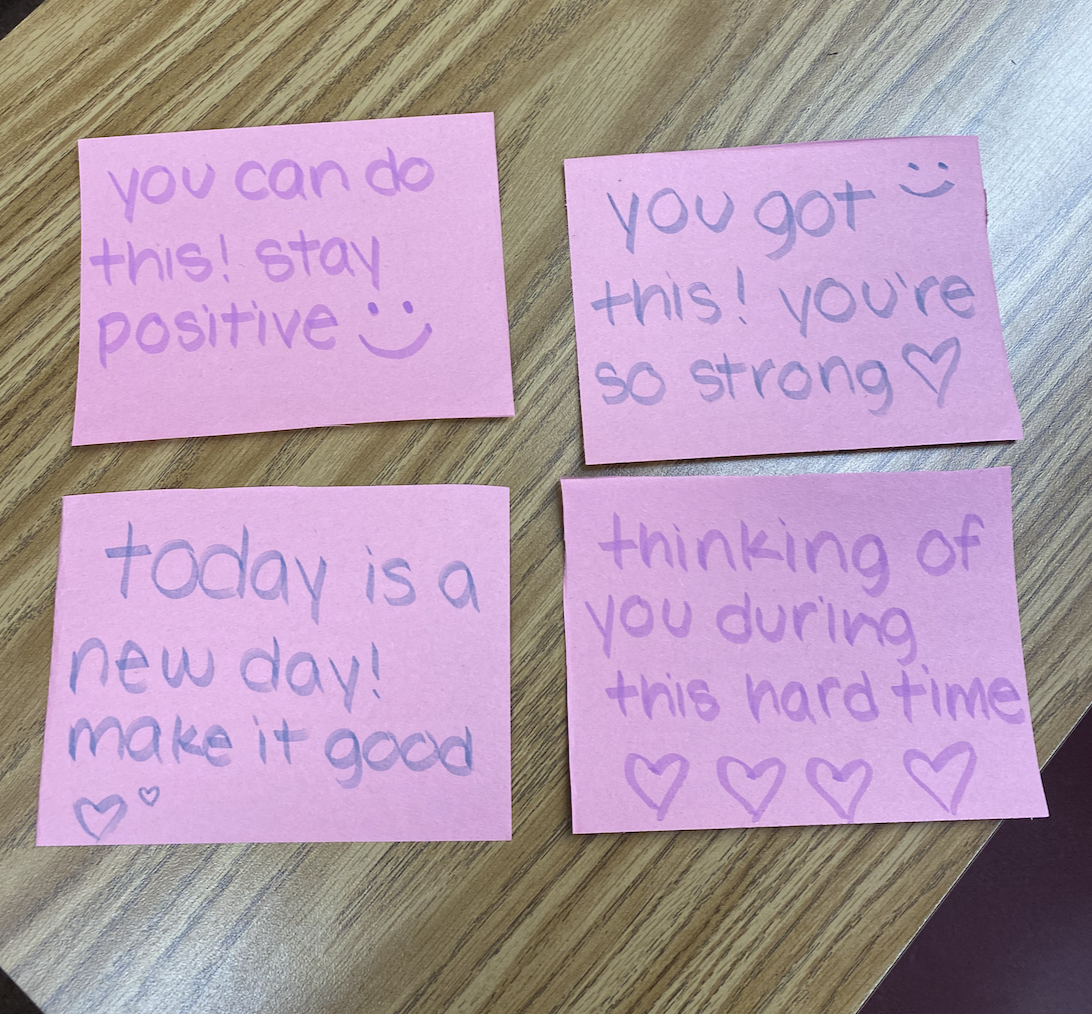 you can do
this! stay
positive
you got
this! you're
so strong
today is a
new day!
make it good
thinking of
you during
this hard time